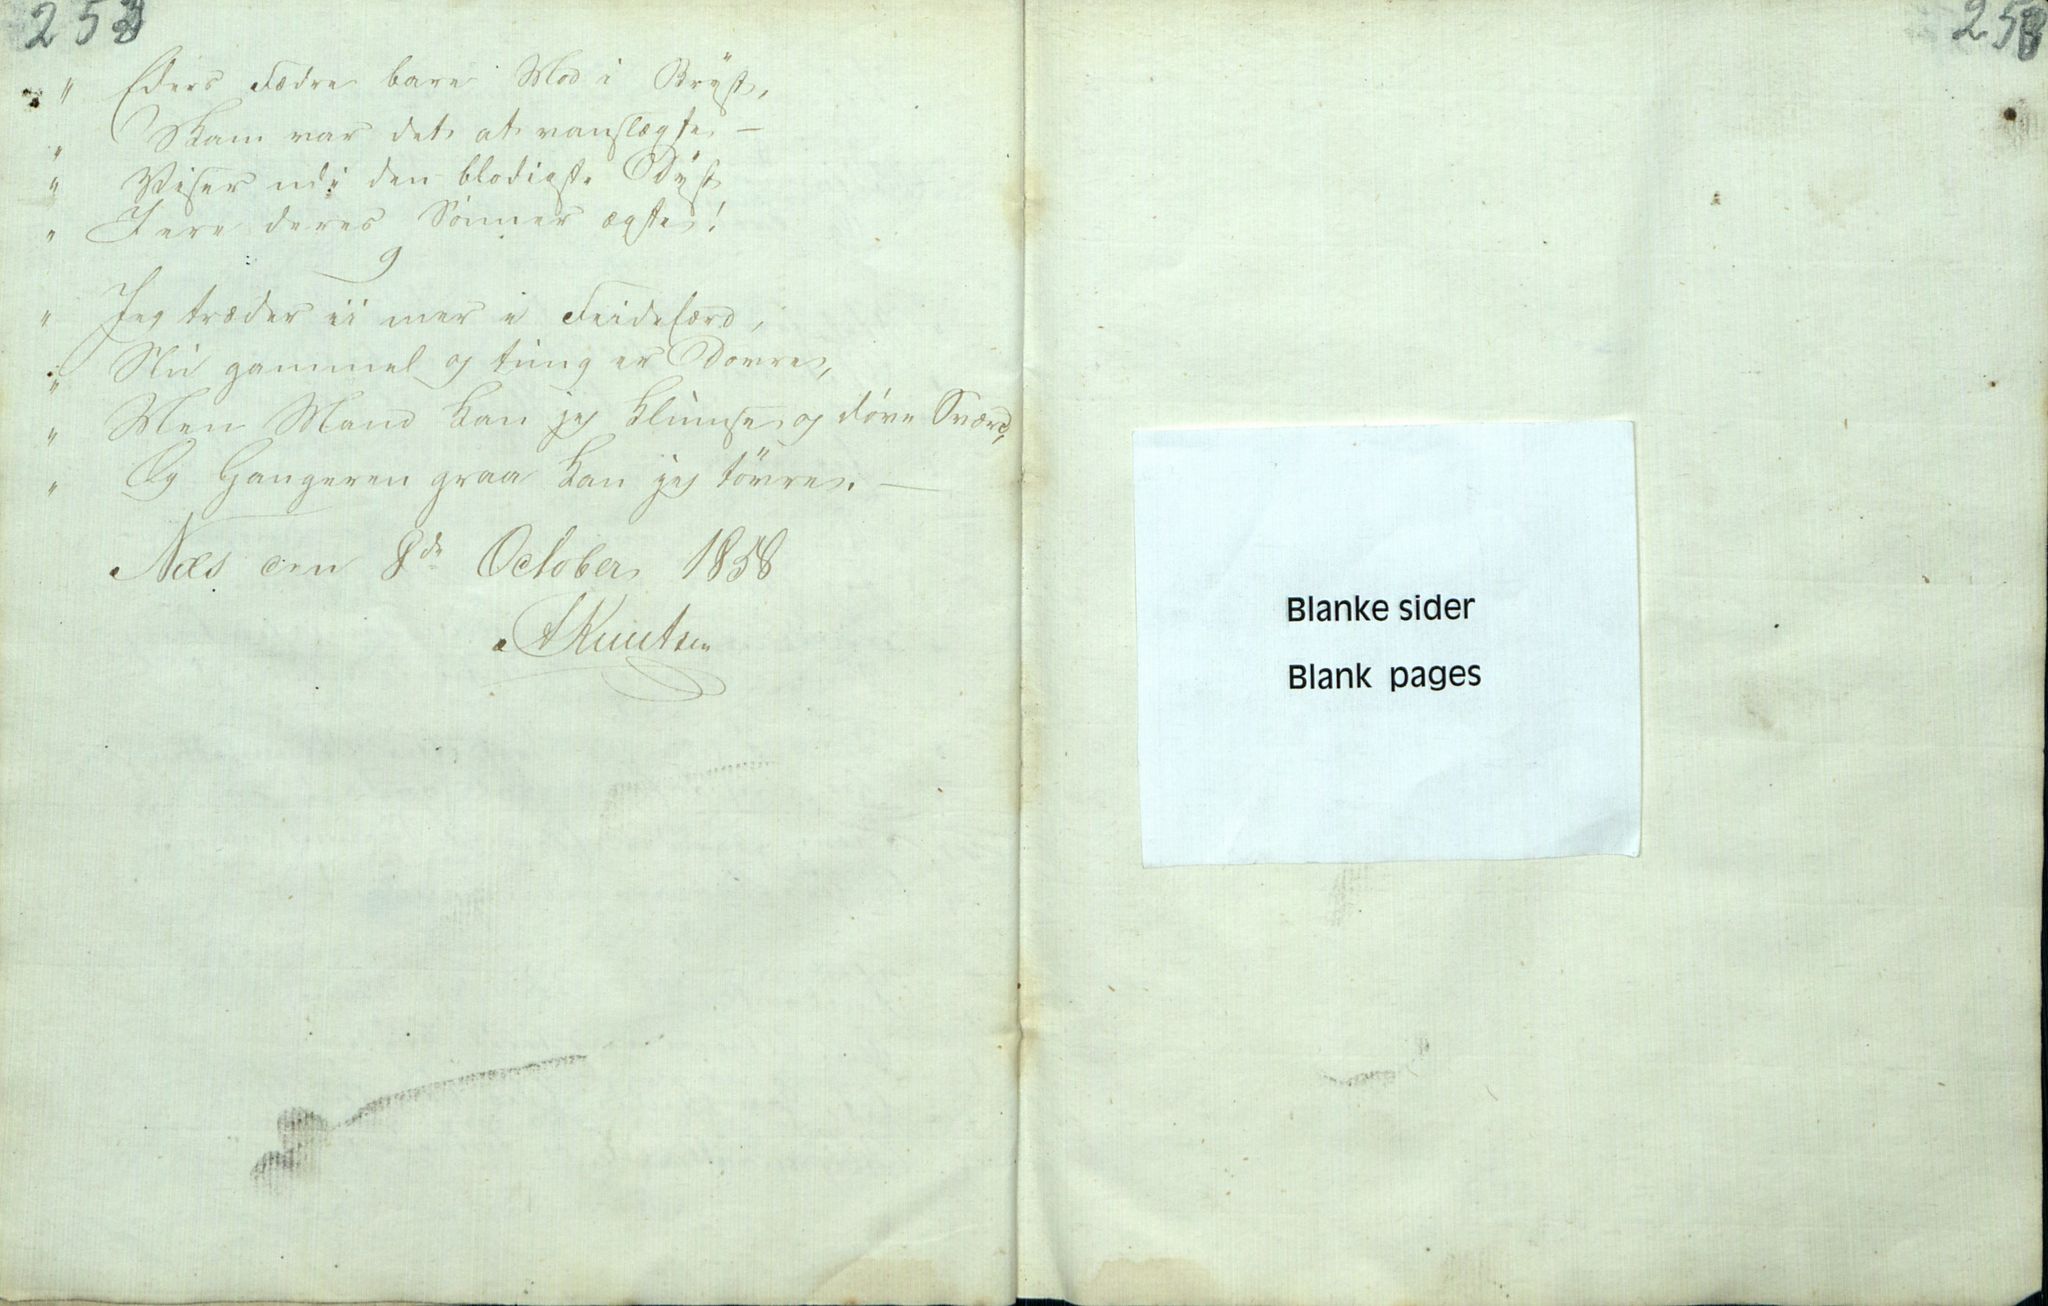 252
" Eders Fædre bare Mod i Bryst,
" Skam var det at vanslægte —
" Viser udi den blodigste Dyst
" I ere deres Sønner ægte!
9
" Jeg træder ei mer i Feidefærd,
" Nu gammel og tung er Dovre,
" Men Mand kan jeg klumse og døve Sværd,
" Og Gangeren graa kan jeg tøvre. —
Næs den 8de October 1858
AKnutsen
253
Blanke sider
Blank pages